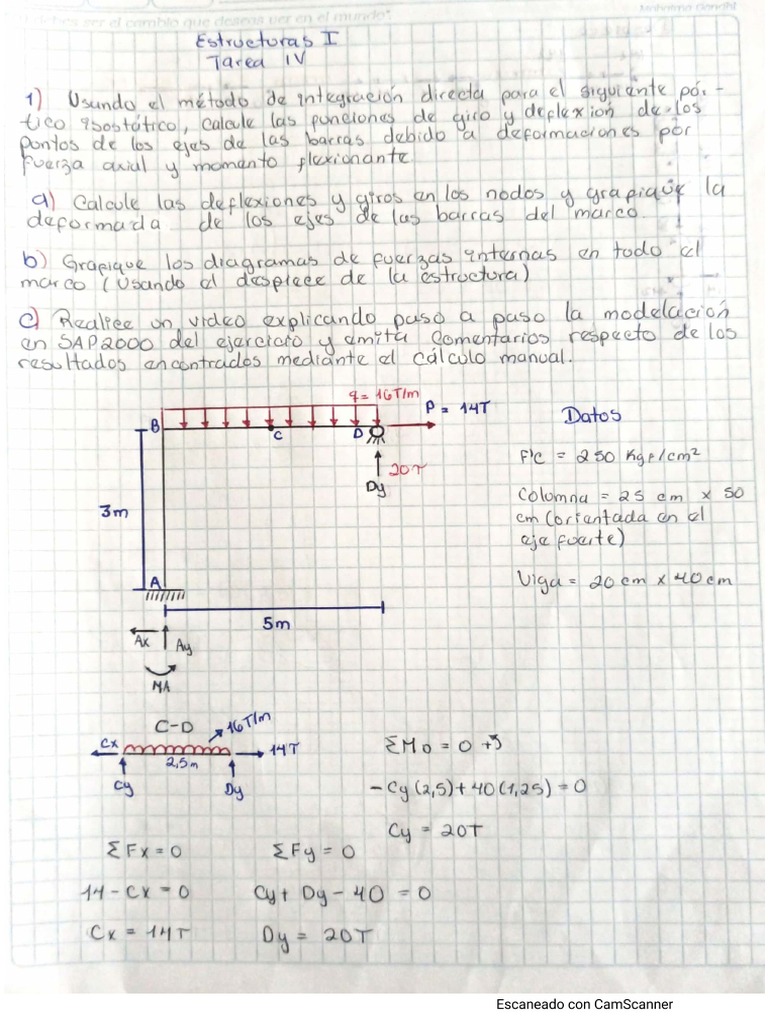 Estructuras I
Tarea IV
1) Usando el método de integración directa para el siguiente pór-
tico isostático, calcule las funciones de giro y deflexion de los
puntos de los ejes de las barras debido a deformaciones por
fuerza axial y momento flexionante.
a) Calcule las deflexiones y giros en los nodos y grafique la
deformada de los ejes de las barras del marco.
b) Grafique los diagramas de fuerzas internas en todo el
marco (Usando el despiece de la estructura)
c) Realice un video explicando paso a paso la modelación
en SAP2000 del ejercicio y emita comentarios respecto de los
resultados encontrados mediante el cálculo manual.
q = 16T/m
P = 14T
Datos
B
C
D
F'c = 250 Kgf/cm²
20T
Dy
Columna = 25 cm x 50
cm (orientada en el
eje fuerte)
3m
A
Viga = 20 cm x 40 cm
5m
Ax
Ay
MA
C-D
16T/m
Cx
14T
2,5m
Cy
Dy
ΣMD = 0 +
- Cy (2,5) + 40 (1,25) = 0
Cy = 20T
ΣFx = 0
ΣFy = 0
14 - Cx = 0
Cy + Dy - 40 = 0
Cx = 14T
Dy = 20T
Escaneado con CamScanner